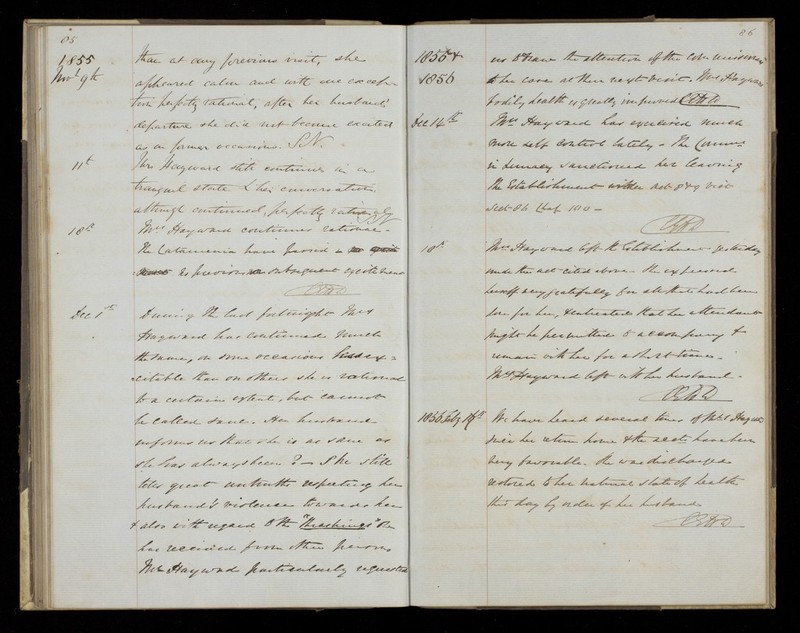 85
1855
Novr 9th
than at any previous visit, she
appeared calm and with one excep-
tion perfectly rational, after her husband's
departure she did not become excited
as on former occasions. S.N.
11th
Mrs Hayward still continues in a
tranquil state & her conversation
although continued, perfectly rational
S.N
18th
Mrs Hayward continues rational.
The Catamenia have passed
previous or subsequent excitement
Dec 1st
During the last fortnight Mrs
Hayward has continued much
the same, on some occasions ex=
=citable than on others she is rational
to a certain extent, but cannot
be called sane. Her husband
informs us that she is as sane as
she has always been? - She still
tells great untruths respecting her
husband's violence towards her
& also with regard to the "Thrashings" she
has received from other persons
Mrs Hayward particularly requested
86
1855 &
1856
us to draw the attention of the Commissioners
to her case at their next visit. Mrs Hayward
bodily health is greatly improved
Dec 14th
Mrs Hayward has exercised much
more self control lately - The Commrs
in Lunacy sanctioned her leaving
the Establishment under act 8 & 9 vict
Sect 86 Cap 100 -
18th
Mrs Hayward left the Establishment yesterday
under the act cited above. She expressed
herself very gratefully for all that had been
done for her, & entreated that her attendant
might be permitted to accompany &
remain with her for a short time.
Mrs Hayward left with her husband.
1856 Feby 16th
We have heard several times of Mrs Hayward
since her return home & the accts have been
very favorable. She was discharged
restored to her natural state of health
this day by order of her husband